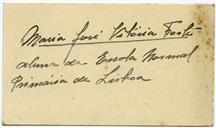 Maria José Vitória
aluna da Escola Normal
Primária de Lisboa